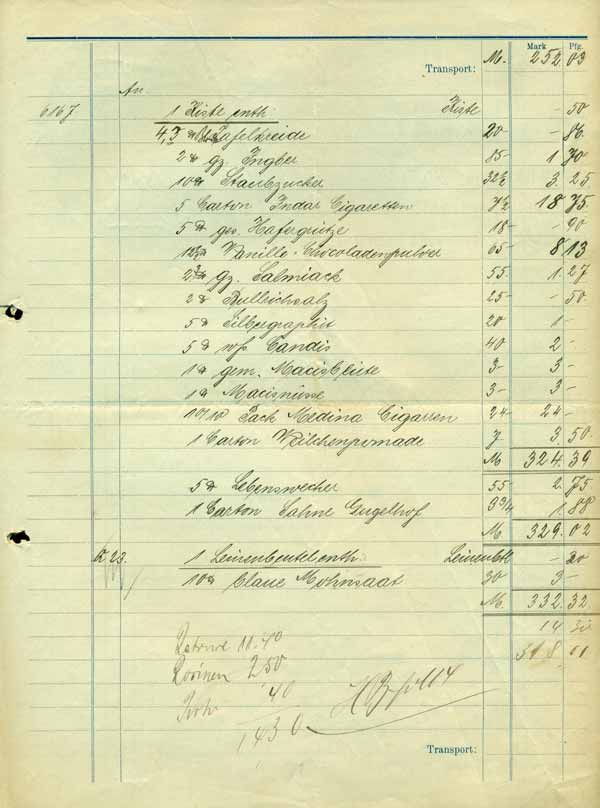 Mark Pfg.
Transport: M. 252 03
An
6167 1 Kiste enth. Kiste 50
4,3 Tafelkreide 20 - 86
2 gz. Ingber 85- 1 70
10 Staubzucker 32½ 3. 25
5 Carton Indar Cigaretten 18 75
5 ger. Hafergrütze 18- - 90
Vanille-Chocoladenpulver 65 8 13
gz. Salmiack 55 1. 27
2 Bullrichsalz 25- - 50.
5 Silbergraphit 20 1 -
5 wß Candis 40 2 -
1 gem. Macisblüte 3- 3 -
1 Macisnüsse 3- 3 -
10/10 Pack Medina Cigarren 24- 24 -
1 Carton Veilchenpomade 7 3. 50
M. 324. 39
5 Lebenswecker 55 2. 75
1 Carton Sahne Gugelhof 1 88
M. 329. 02
23. 1 Leinenbeutel enth. Leinenbtl - 30
10 blaue Mohnsaat 30 3 -
M. 332. 32
14 30
318. 01
Retour 11.40
Rosinen 250
40
1430
Transport: